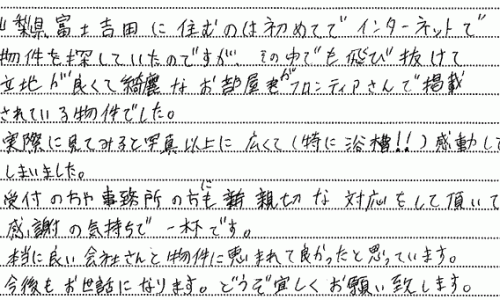 山梨県富士吉田に住むのは初めてでインターネットで
物件を探していたのですが その中でも飛び抜けて
立地が良くて綺麗なお部屋がフロンティアさんで掲載
されている物件でした。
実際に見てみると写真以上に広くて(特に浴槽!!)感動して
しまいました。
受付の方や事務所の方にも 親切な対応をして頂いて
感謝の気持ちで一杯です。
本当に良い会社さんと物件に恵まれて良かったと思っています。
今後もお世話になります。どうぞ宜しくお願い致します。